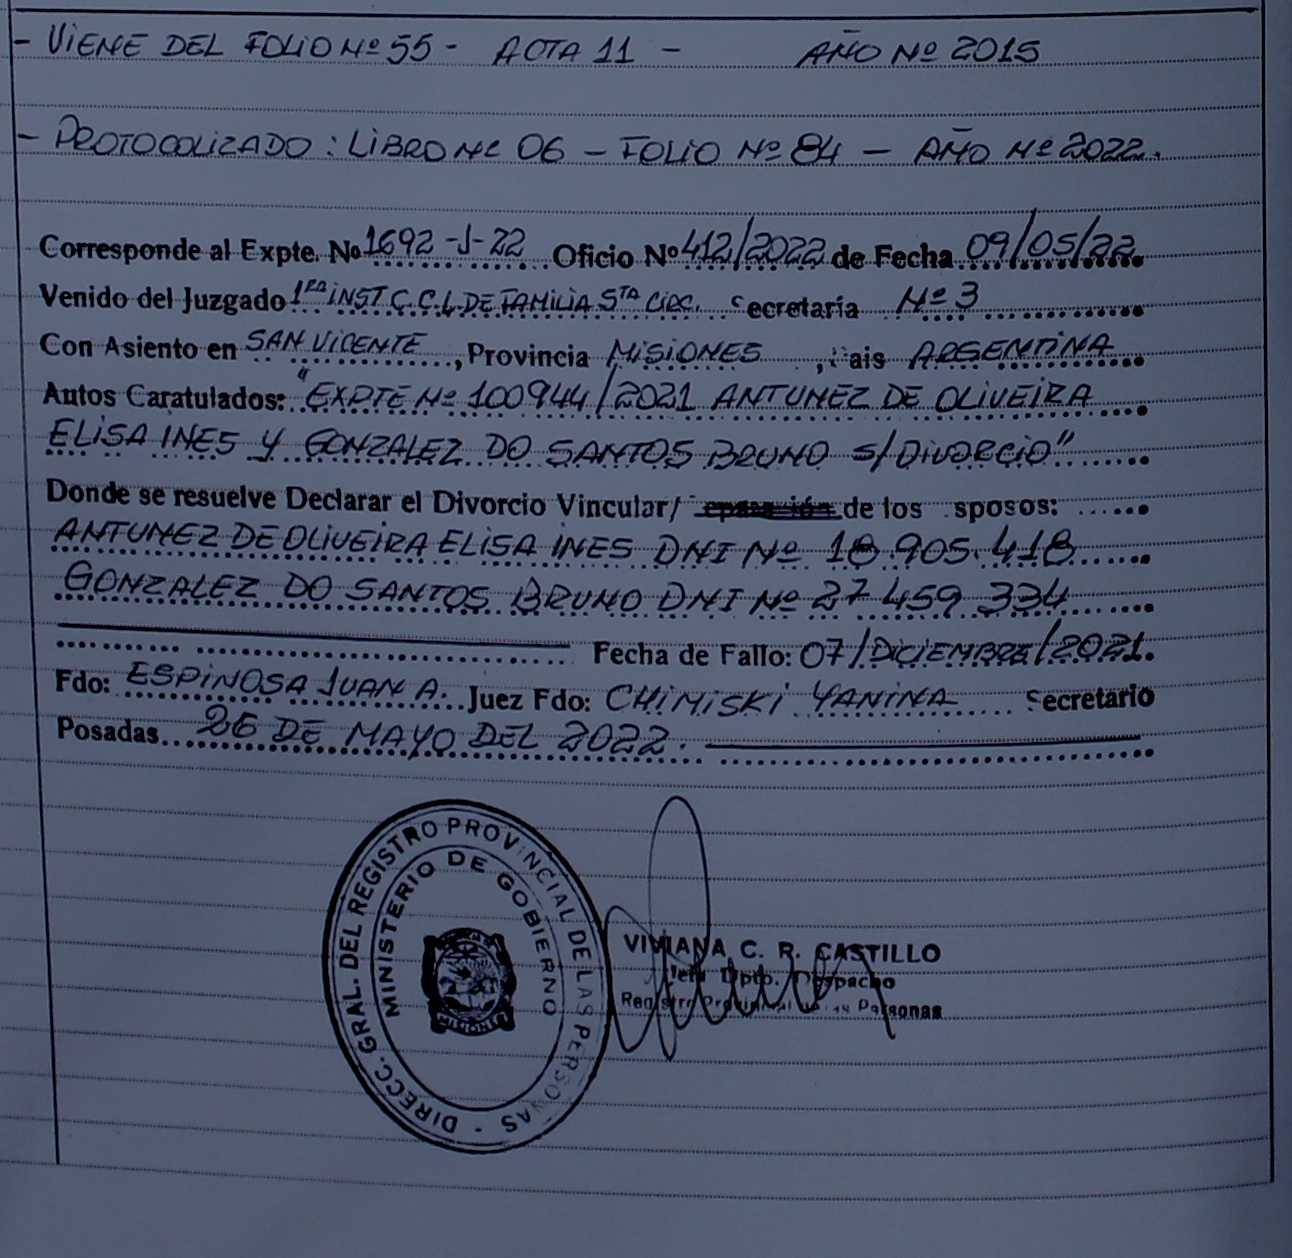 - VIENE DEL FOLIO Nº 55 - ACTA 11 - AÑO Nº 2015
- PROTOCOLIZADO : LIBRO Nº 06 - FOLIO Nº 84 - AÑO Nº 2022.
Corresponde al Expte. Nº 1692-J-22 Oficio Nº 412/2022 de Fecha 09/05/22
Venido del Juzgado 1ra INST C.C.L. DE FAMILIA 5TA CIRC. Secretaría Nº 3
Con Asiento en SAN VICENTE, Provincia MISIONES, Pais ARGENTINA
Autos Caratulados: "EXPTE Nº 100944/2021 ANTUNEZ DE OLIVEIRA
ELISA INES Y GONZALEZ DO SANTOS BRUNO S/DIVORCIO"
Donde se resuelve Declarar el Divorcio Vincular/ eparación de los sposos:
ANTUNEZ DE OLIVEIRA ELISA INES DNI Nº 18.905.418
GONZALEZ DO SANTOS BRUNO DNI Nº 27 459 334
Fecha de Fallo: 07/DICIEMBRE/2021.
Fdo: ESPINOSA JUAN A. Juez Fdo: CHIMISKI YANINA Secretario
Posadas 26 DE MAYO DEL 2022.
DIRECC. GRAL. DEL REGISTRO PROVINCIAL DE LAS PERSONAS -
MINISTERIO DE GOBIERNO
MISIONES
VIVIANA C. R. CASTILLO
Jefa Dpto. Despacho
Registro Provincial de las Personas